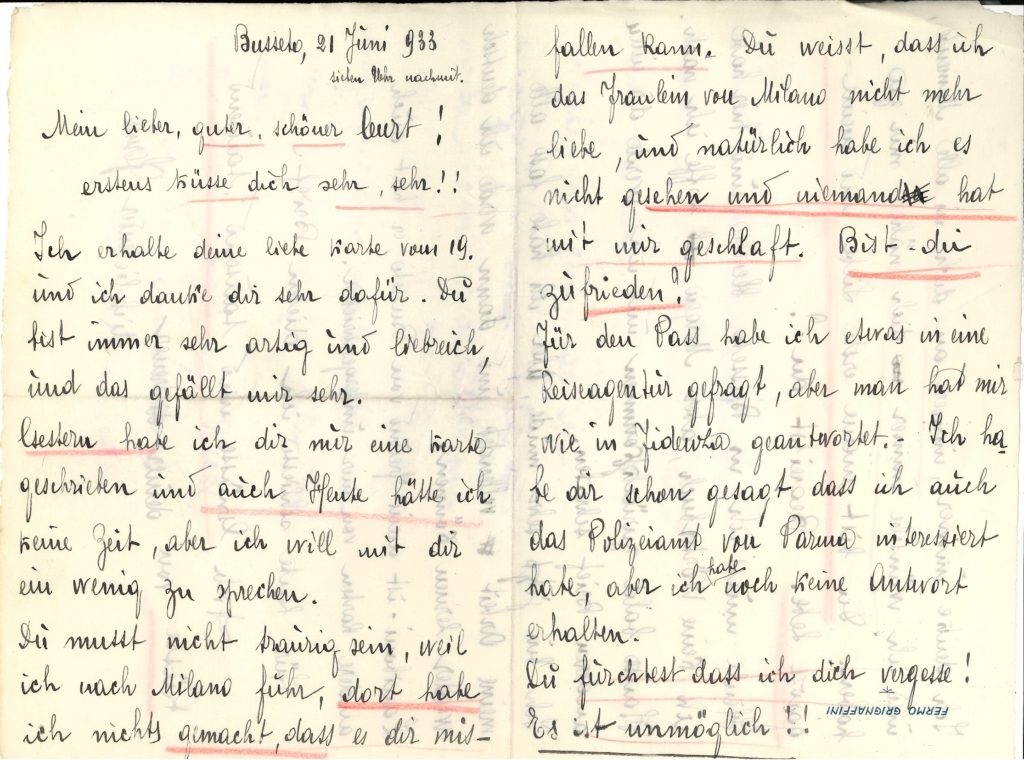 Busseto, 21 Juni 933
sieben Uhr nachmit.
Mein lieber, guter, schöner Curt!
erstens küsse dich sehr, sehr!!
Ich erhalte deine liebe Karte vom 19.
und ich danke dir sehr dafür. Du
bist immer sehr artig und liebreich,
und das gefällt mir sehr.
Gestern habe ich dir nur eine Karte
geschrieben und auch Heute hätte ich
keine Zeit, aber ich will mit dir
ein wenig zu sprechen.
Du musst nicht traurig sein, weil
ich nach Milano führ, dort habe
ich nichts gemacht, dass es dir mis-
fallen kann. Du weisst, dass ich
das Fraulein von Milano nicht mehr
liebe, und natürlich habe ich es
nicht gesehen und niemand hat
mit mir geschlaft. Bist du
zufrieden?
Für den Pass habe ich etwas in eine
Reiseagentur gefragt, aber man hat mir
wie in Fidenza geantwortet.- Ich ha
be dir schon gesagt dass ich auch
das Polizeiamt von Parma interessiert
habe, aber ich habe noch keine Antwort
erhalten.
Du fürchtest dass ich dich vergesse!
Es ist unmöglich!!
FERMO GRIGNAFFINI